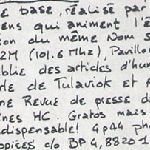 base, réalisé par
ens qui animent l'é
ion du même Nom s
2M (101.6 Mhz), Pavillon
blie des articles d'hum
rle de Tulaviok et
ne Revue de presse d
ines HC. Gratos mais
dispensable! 4 p A4 ph
opiées c/o BP 4, 8820 1